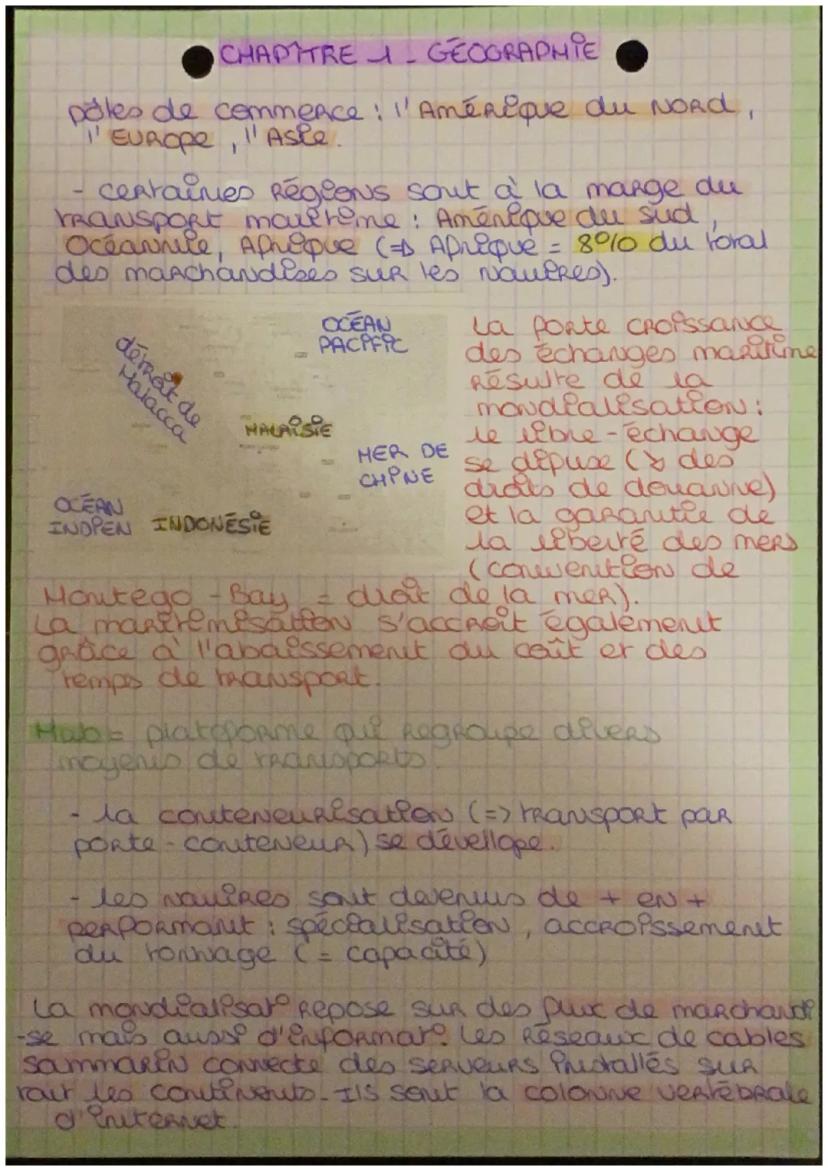 CHAPITRE 1 - GÉOGRAPHIE
pôles de commerce : l'Amérique du Nord,
l'Europe, l'Asie.
- certaines Régions sont à la marge du
transport maritime : Amérique du Sud,
Océannie, Afrique (=> Afrique = 8% du total
des marchandises sur les navires).
détroit de
Malacca
OCÉAN
PACIFIC
MALAISIE
MER DE
CHINE
OCÉAN
INDIEN
INDONÉSIE
La forte croissance
des échanges maritime
résulte de la
mondialisation :
le libre-échange
se difuse (↘ des
droits de douanne)
et la garantie de
la liberté des mers
(convention de
Montego-Bay = droit de la mer).
La maritimisation s'accroît également
grâce à l'abaissement du coût et des
temps de transport.
Hub = plateforme qui regroupe divers
moyens de transports.
- la conteneurisation (=> transport par
porte-conteneur) se dévellope.
- les navires sont devenus de + en +
performant : spécialisation, accroissement
du tonnage (= capacité)
La mondialisat° repose sur des flux de marchandi
-se mais aussi d'informat°. Les réseaux de cables
sammarin connecte des serveurs installés sur
tout les continents. Ils sont la colonne vertébrale
d'internet.